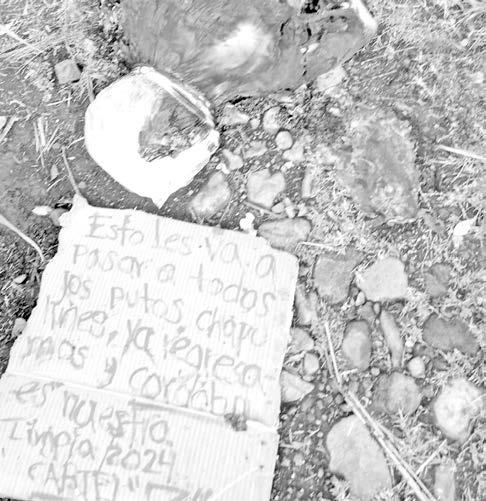 Esto les va a
pasar a todos
los putos chapu
lines, ya regresa-
mos y cordoba
es nuestro.
Limpia 2024
CARTEL